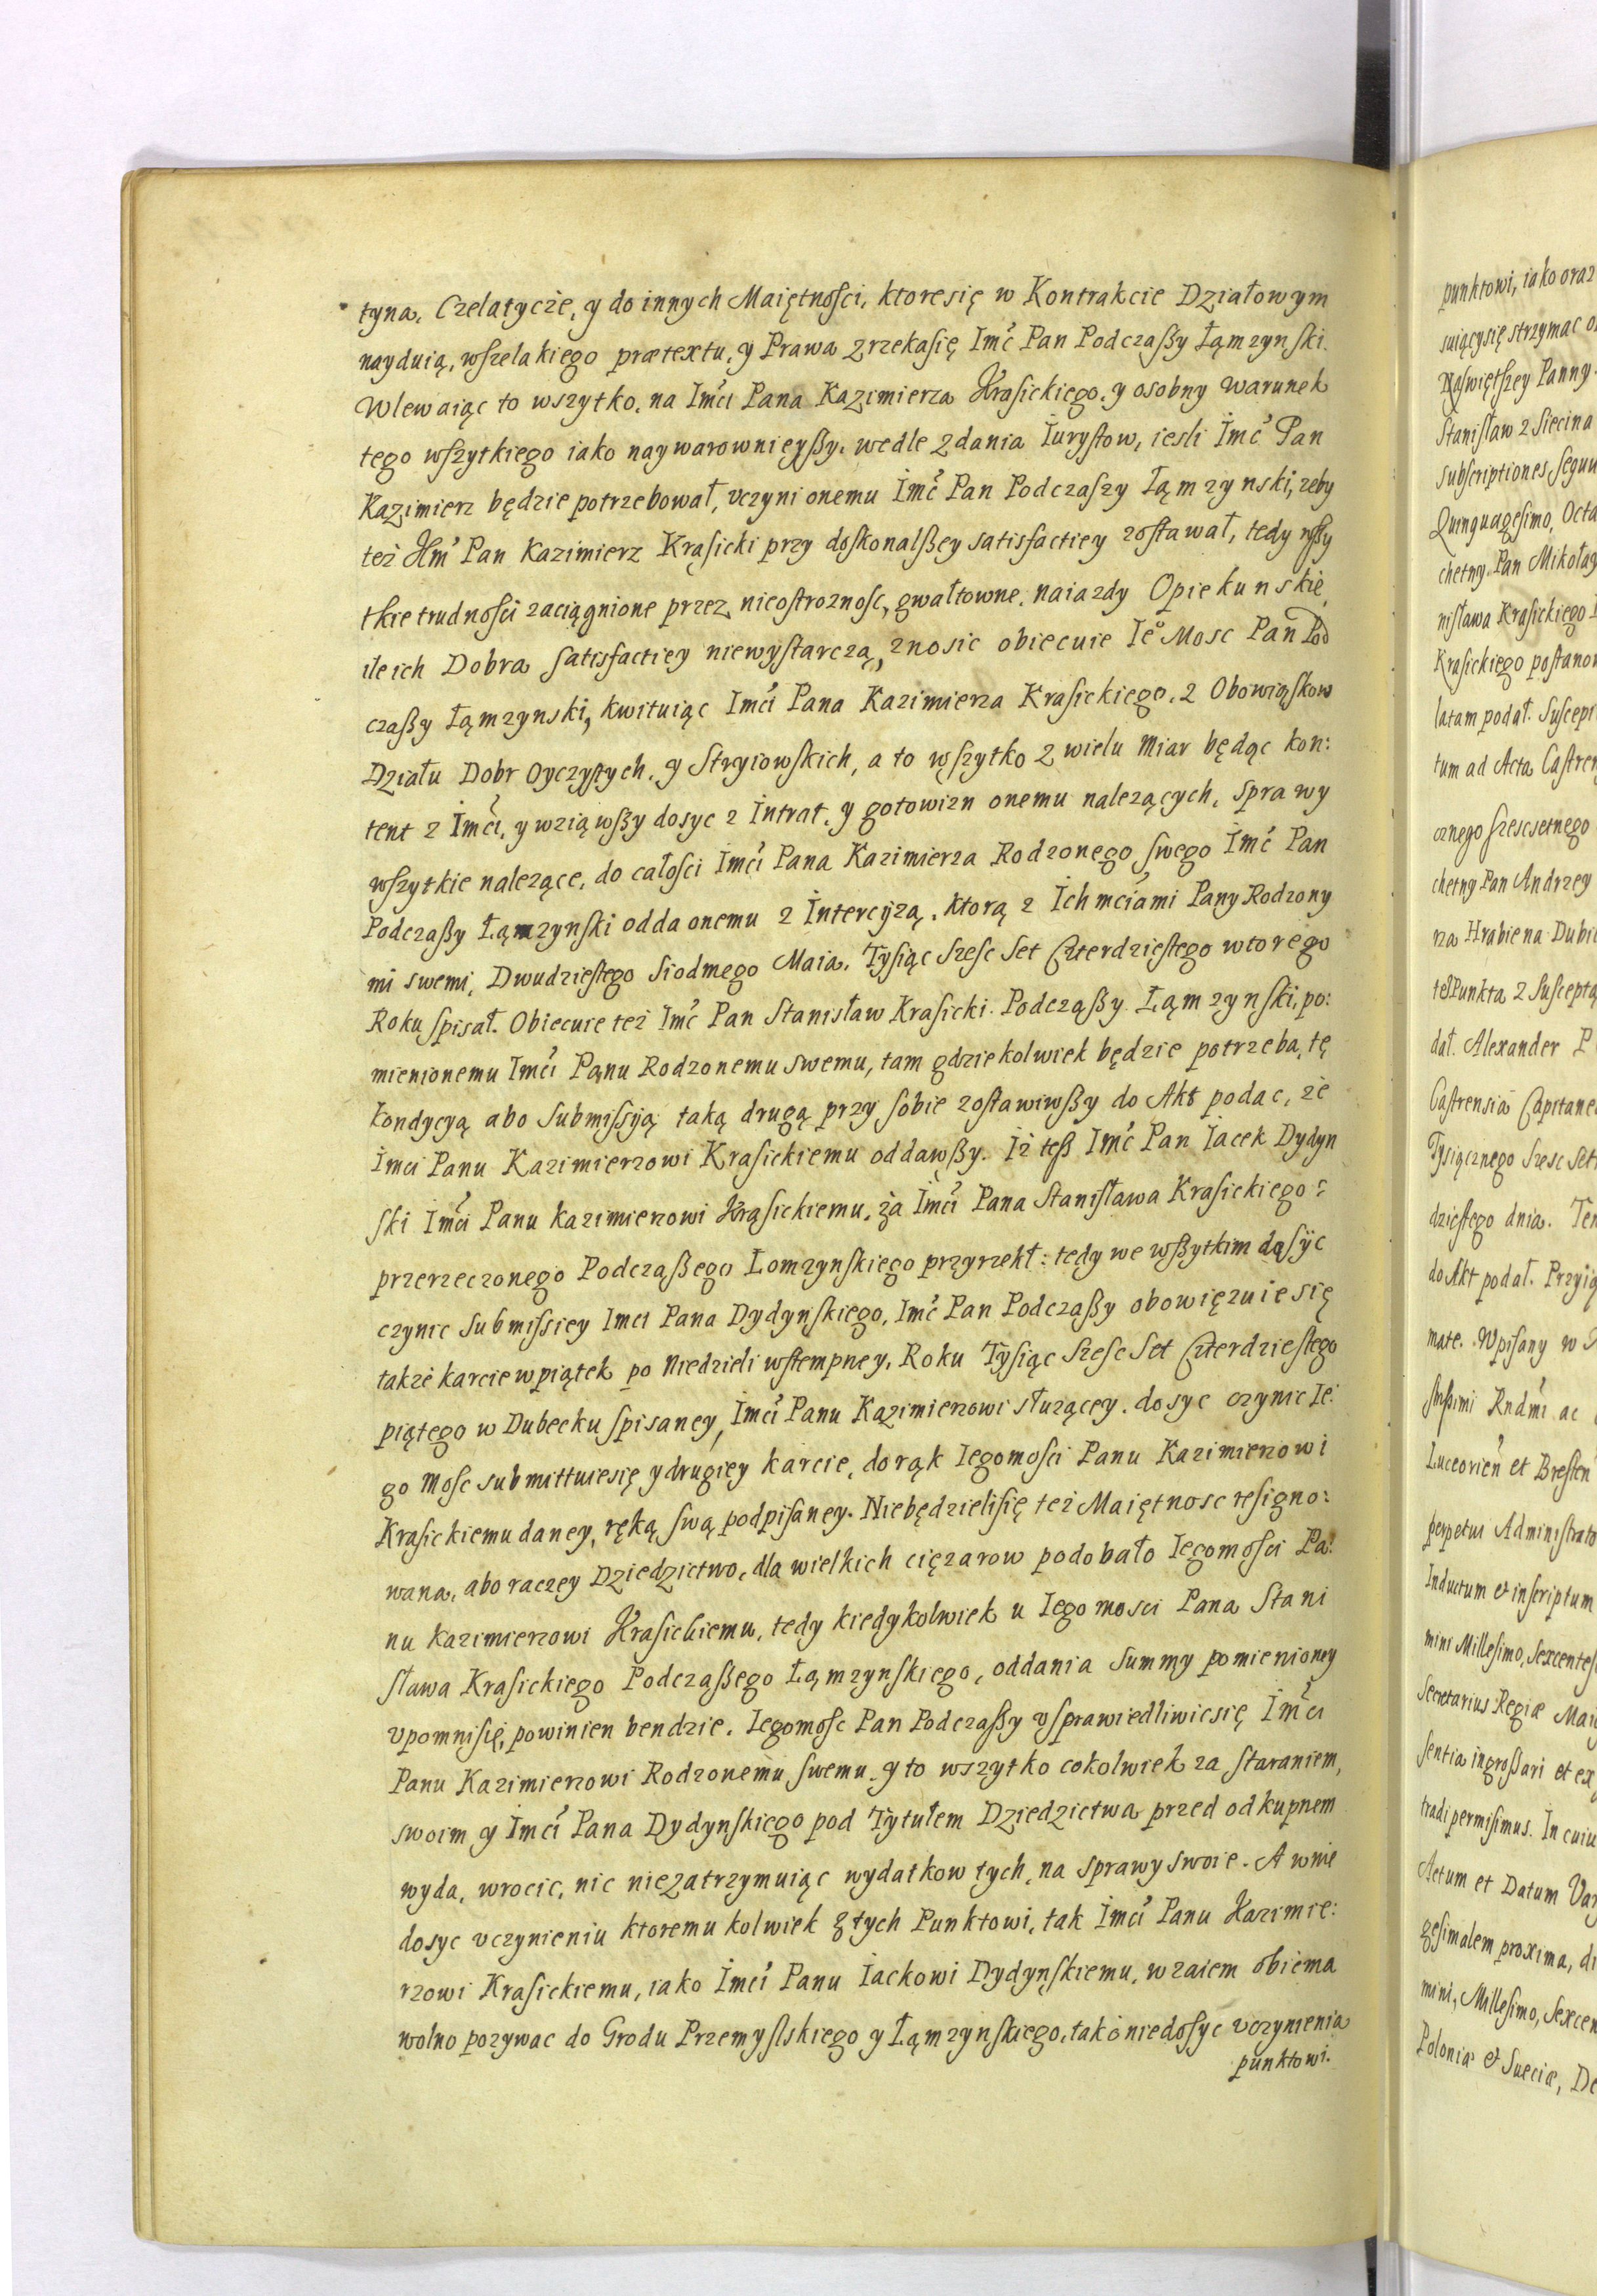 tyna, Czelatycże, y do innych Maiętnosci, ktore się w Kontrakcie Działowym
nayduią, wszelakiego prætextu, y Prawa zrzeka się Imć Pan Podczaßy Łąmzynski.
Wlewaiąc to wszytko, na Imći Pana Kazimierza Krasickiego, y osobny warunek
tego wszytkiego iako naywarownieyßy, wedle zdania Iurystow, iesli Imć Pan
Kazimierz będzie potrzebował, vczyni onemu Imć Pan Podczaszy Łąmzynski, zeby
też Im̃ Pan Kazimierz Krasicki przy doskonalßey satisfactiey zostawał, tedy wßy
tkie trudnosci zaciągnione przez nieostroznosc, gwałtowne, naiazdy Opiekunskie
ile ich Dobra satisfactiey niewystarczą, znosic obiecuie Ieº Mosc Pan Pod
czaßy Łąmzynski, kwituiąc Imći Pana Kazimierza Krasickiego, z Obowiąskow
Działu Dobr Oyczystych, y Stryiowskich, a to wszytko z wielu miar będąc kon:
tent z Imći, y wziąwßy dosyc z Intrat, y gotowizn onemu nalezących, sprawy
wszytkie nalezące, do całosci Imći Pana Kazimierza Rodzonego swego Imć Pan
Podczaßy Łąmzynski odda onemu z Intercyzą, ktorą z Ich mciami Pany Rodzony
mi swemi, Dwudziestego Siodmego Maia, Tysiąc Szesc Set Czterdziestego wtorego
Roku spisał. Obiecuie też Imć Pan Stanisław Krasicki Podczaßy Łąmzynski, po:
mienionemu Imći Panu Rodzonemu swemu, tam gdziekolwiek będzie potrzeba, tę
kondycyą abo Submissyą taką drugą przy sobie zostawiwßy do Akt podac, że
Imci Panu Kazimierzowi Krasickiemu oddawßy. Iż teß Imć Pan Iacek Dydyn
ski Imći Panu Kazimierzowi Krasickiemu, za Imći Pana Stanisława Krasickiego:
przerzeczonego Podczaßego Łomzynskiego przyrzekł: tedy we wßytkim dosyc
czynic Submissiey Imci Pana Dydynskiego, Imć Pan Podczaßy obowięzuie się
także karcie w piątek po Niedzieli wstempney, Roku Tysiąc Szesc Set Czterdziestego
piątego w Dubecku spisaney, Imći Panu Kazimierzowi słuzącey, dosyc czynic Ie:
go Mosc submittuie się y drugiey karcie, do rąk Iegomosci Panu Kazimierzowi
Krasickiemu daney, ręką swą podpisaney. Niebędzieli się też Maiętnosc resigno:
wana, abo raczey Dziedzictwo, dla wielkich cięzarow podobało Iegomosci Pa:
nu Kazimierzowi Krasickiemu, tedy kiedykolwiek u Iegomosci Pana Stani
sława Krasickiego Podczaßego Łąmzynskiego, oddania Summy pomienioney
vpomni się, powinien bendzie, Iegomosc Pan Podczaßy vsprawiedliwic się Imći
Panu Kazimierzowi Rodzonemu swemu, y to wszytko cokolwiek za staraniem,
swoim y Imći Pana Dydynskiego pod Tytułem Dziedzictwa przed odkupnem
wyda, wrocic, nic niezatrzymuiąc wydatkow tych, na sprawy swoie. A w nie
dosyc vczynieniu ktoremu kolwiek z tych Punktowi, tak Imći Panu Kazimie:
rzowi Krasickiemu, iako Imći Panu Iackowi Dydynskiemu, wzaiem obiema
wolno pozywac do Grodu Przemyslskiego y Łąmzynskiego, tak o niedosyc vczynienia
punktowi.

punktowi, iako oraz
suiący się strzymac
Panny
Stanisław z Siecina
Subscriptiones
Quinquagesimo, Octa
chetny Pan Mikołay
nisława Krasickiego
Krasickiego postano
latam podał. Suscep
tum ad Acta Castren
cznego szescsetnego
chetny Pan Andrzey
rza Hrabiena Dubi
Punkta z Suscepta
dał. Alexander P
Castrensia Capitane
Tysiącznego Szesc Set
dziestego dnia. Ten
do Akt podał. Przyię
mate. Wpisany w
Rndmi ac
Luceorien et Bresten
perpetui Administrato
Inductum et inscriptum
mini Millesimo, Sexcentes
Secretarius Regiæ Maie
sentia ingrossari et ex
tradi permisimus. In cuiu
Actum et Datum Var
gesimalem proxima, di
mini, Millesimo, Sexcen
Poloniæ et Sueciæ, De